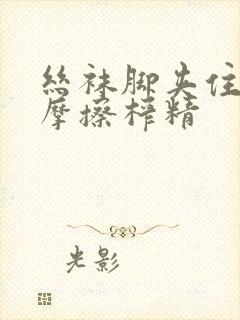 丝袜脚夹住
摩擦榨精
光影